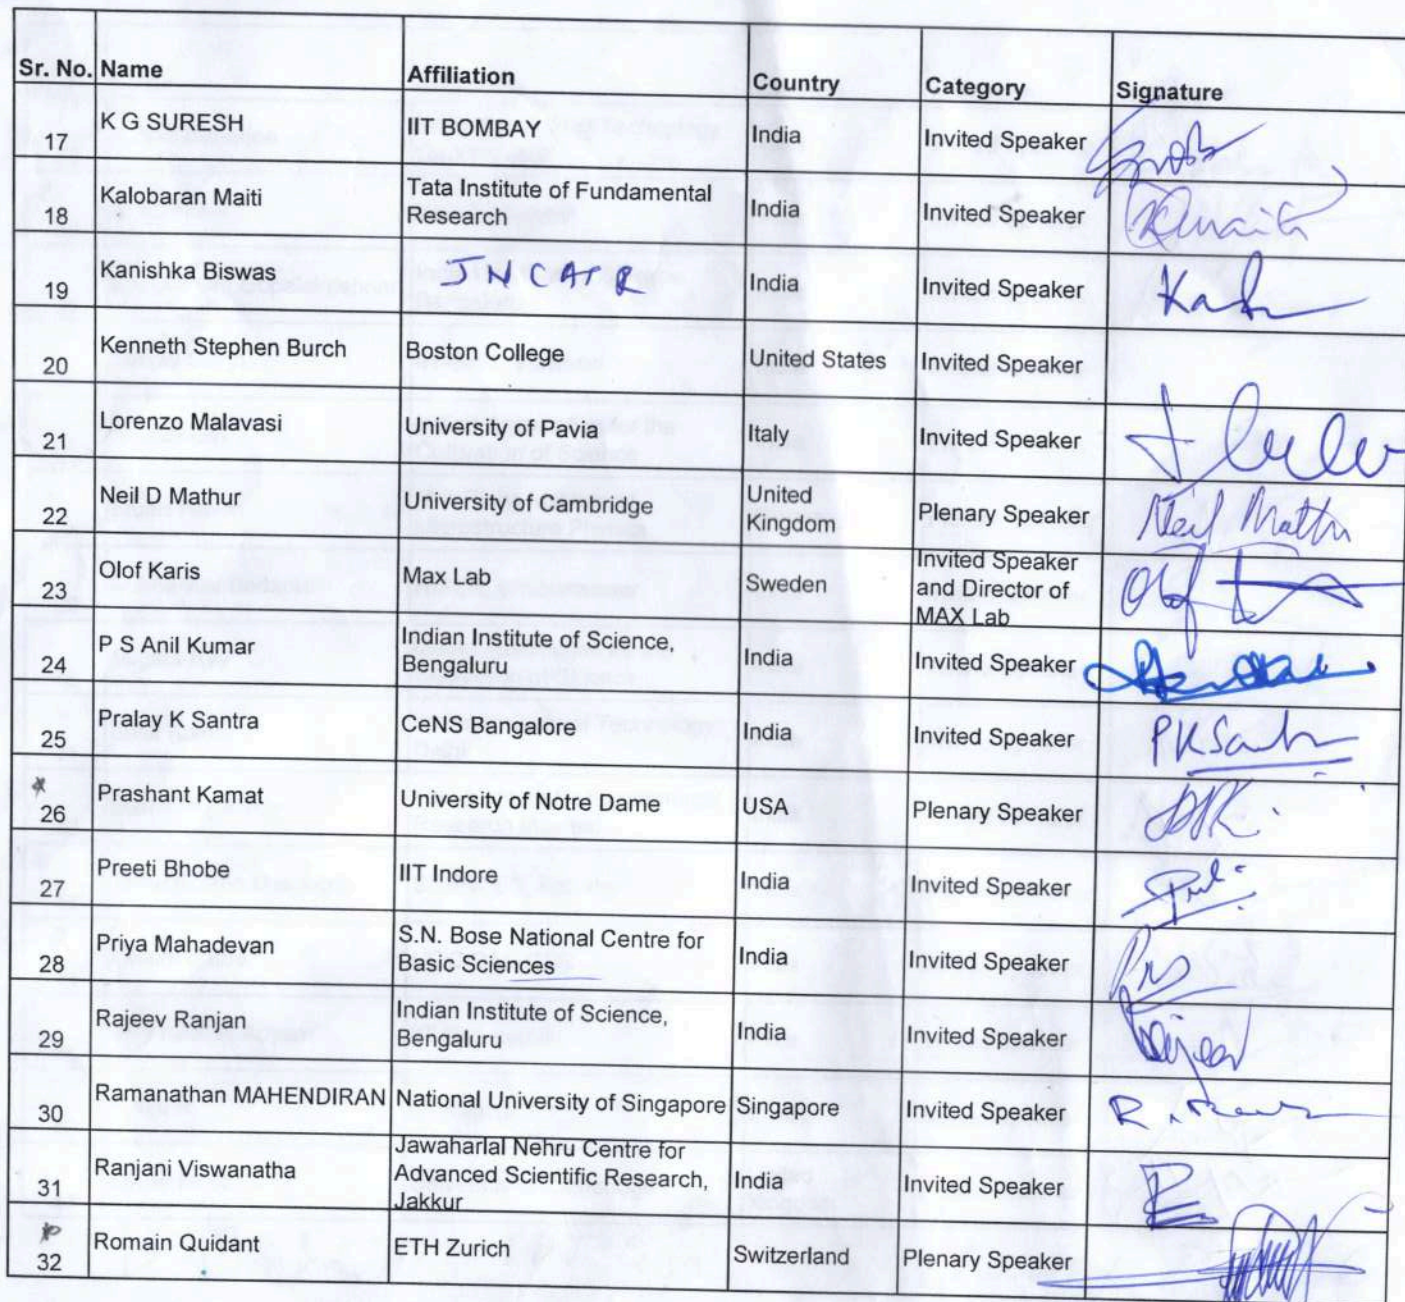 Sr. No. Name Affiliation Country Category Signature
17 K G SURESH IIT BOMBAY India Invited Speaker
18 Kalobaran Maiti Tata Institute of Fundamental Research India Invited Speaker
19 Kanishka Biswas JNCASR India Invited Speaker
20 Kenneth Stephen Burch Boston College United States Invited Speaker
21 Lorenzo Malavasi University of Pavia Italy Invited Speaker
22 Neil D Mathur University of Cambridge United Kingdom Plenary Speaker Neil Mathur
23 Olof Karis Max Lab Sweden Invited Speaker and Director of MAX Lab Olof
24 P S Anil Kumar Indian Institute of Science, Bengaluru India Invited Speaker
25 Pralay K Santra CeNS Bangalore India Invited Speaker PKSantra
26 Prashant Kamat University of Notre Dame USA Plenary Speaker
27 Preeti Bhobe IIT Indore India Invited Speaker
28 Priya Mahadevan S.N. Bose National Centre for Basic Sciences India Invited Speaker
29 Rajeev Ranjan Indian Institute of Science, Bengaluru India Invited Speaker Rajeev
30 Ramanathan MAHENDIRAN National University of Singapore Singapore Invited Speaker
31 Ranjani Viswanatha Jawaharlal Nehru Centre for Advanced Scientific Research, Jakkur India Invited Speaker
32 Romain Quidant ETH Zurich Switzerland Plenary Speaker